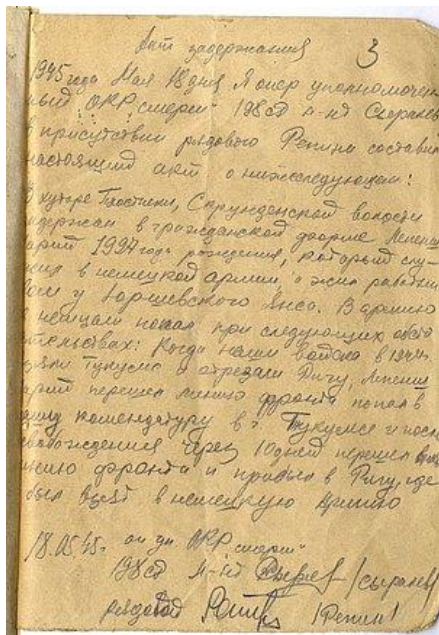 Акт задержания 3
1945 года Мая 18 дня Я опер уполномочен
ный ОКР "смерш" 198 сд л-нт
в присутствии рядового Репина составил
настоящий акт о нижеследующем:
В хуторе Спрунденской волости
задержан в гражданской форме
1927 года рождения, который слу-
жил в немецкой армии, а жил
у Янса. В армию
к немцам попал при следующих обсто
ятельствах: Когда наши войска в 1944 г.
взяли Тукумс и отрезали Ригу,
перешел линию фронта попал в
нашу комендатуру в г. Тукумсе и после
освобождения через 10 дней перешел
линию фронта и прибыл в Ригу, где
был взят в немецкую Армию
18.05.45г. ОКР "смерш"
198 сд л-нт
рядовой /Репин/